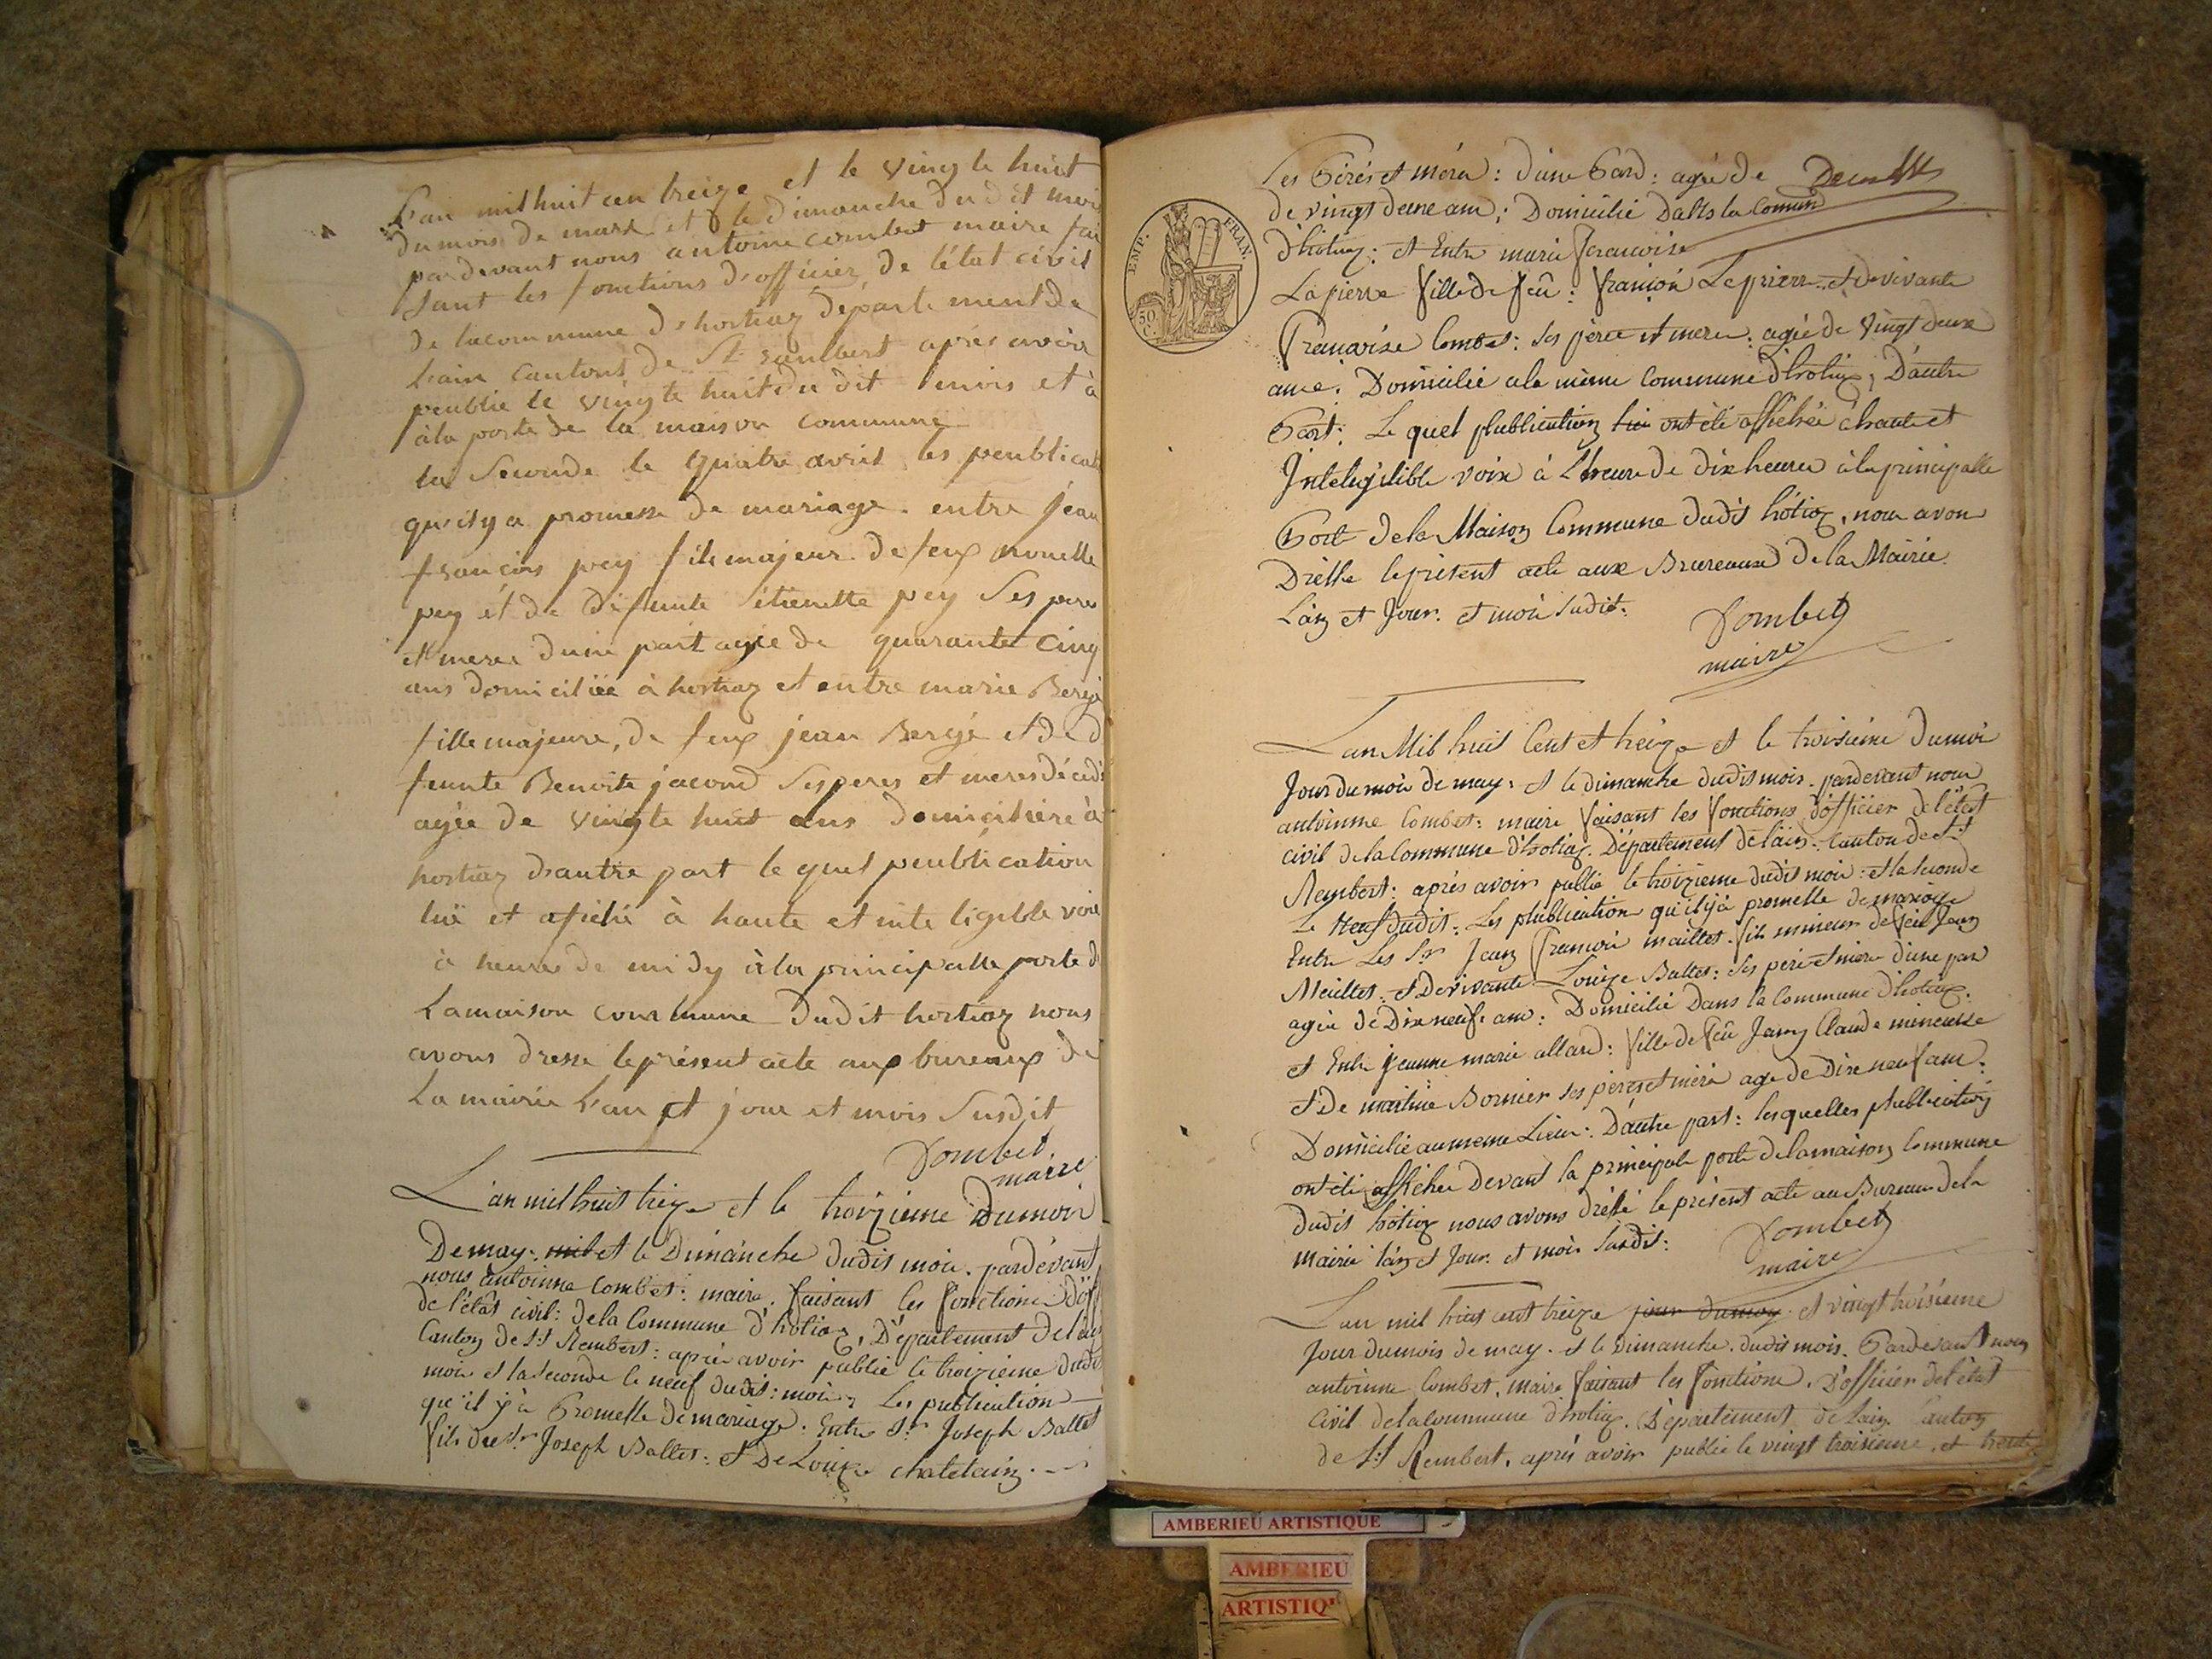 L'an mil huit cen treize et le vingte huit
du mois de mars et le dimanche du dit mois
par devant nous antoine combet maire fai
sant les fonctions d'officier de l'état civil
de la commune d'hostiaz département de
l'ain cantons de St rambert après avoir
peublie le vingte huit du dit mois et à
à la porte de la maison commune
la seconde le quatre avril les peublicati
qu'il y a promesse de mariage entre jean
françois pey fils majeur de feux
pey et de défunte étienette pey ses peres
et meres d'une part agée de quarante cinq
ans domiciliée à hostiaz et entre marie Bergé
fille majeure, de feux jean Bergé et de d
feunte Benoite jacond ses peres et meres décédé
agée de vingte huit ans domiciliere à
hostiaz d'autre part le quel peublication
lüe et afiché à haute et inteligible voie
à heures de midy à la principalle porte d
La maison commune dudit hostiaz nous
avons dressé le présent acte aux bureaux de
La mairie l'an et jour et mois susdit
Combet
maire
L'an mil huit treize et le troizieme Dumoir
De may. et le Dimanche dudis mois. pardevant
nous antoinne Combet: maire. faisant les fonctions d'off
de l'étât civil: de la Commune d'hotiaz, Département de l'ain
Canton de St Rembert: après avoir publié le troizieme dudi
mois et la seconde le neuf dudit: mois, Les publication
qu'il y à Promesse De mariage: Entre Sr Joseph Ballet
fils du Sr Joseph Ballet: et De Louize chatelain.
Les Pérés et méra: d'une Pard: agée de
de vingt deux ans; Domicilié Dans la Comun
d'hotiaz: et Entre marie francoise
Lapierre fille de feû: françois Lapierre et de vivante
Françoise Combet: ses pere et mere: agée de Vingt deux
ans: Domicilié a la même Commune d'hotiaz, D'autre
Part: Le quel plublication ont été affichée à haute et
Intelegitible voix à L'heure de dix heures à la principalle
Port de la Maison Commune dudit hôtiaz, nous avons
Drésse le présent acte aux Bureaux de la Mairie
L'an et Jour. et mois sudit:
Combet
maire
L'an Mil huit Cent et treize et le troisième dumoi
Jour du mois de may: et le dimanche dudis mois. pardevant nous
antoinne Combet: maire faisant les fonctions d'officier de l'état
civil de la Commune d'hotiaz. Département de l'ain. Canton de St
Rembert: après avoir publié le troizieme dudit mois: et la seconde
Le Neuf dudit: Les plublication qu'il y à promesse de mariage
Entre Les Sr Jean François maillet. fils mineur de feu Jean
Meillet: et De vivante Louize Ballet: ses pere et mere d'une par
agée de Dix neuf ans: Domicilié Dans la Commune d'hotiaz.
et Entre jeanne marie allard: fille de feû Jeany Claude mineusse
et De martine Bornier ses peres et méré age de Dix neuf ans:
Domicilié au meme Lieu: D'autre part: lesquelles plublication
ont été affichée Devant la principale porte de la maison Commune
dudit hôtiaz nous avons drésé le présent acte au Bureau de la
mairie l'an et Jour. et mois susdit:
Combet
maire
L'an mil huit cent treize jour du may et vingt troisième
Jour du mois de may. et le Dimanche. dudit mois. Pardevant nous
antoinne Combet, maire faisant les fonctions. D'officier de l'état
Civil de la Commune d'hotiaz. Département de l'ain. Canton
de St Rembert, après avoir publié le vingt troisieme, et trente
EMP.
FRAN.
50
C.
AMBERIEU ARTISTIQUE
AMBERIEU
ARTISTIQ